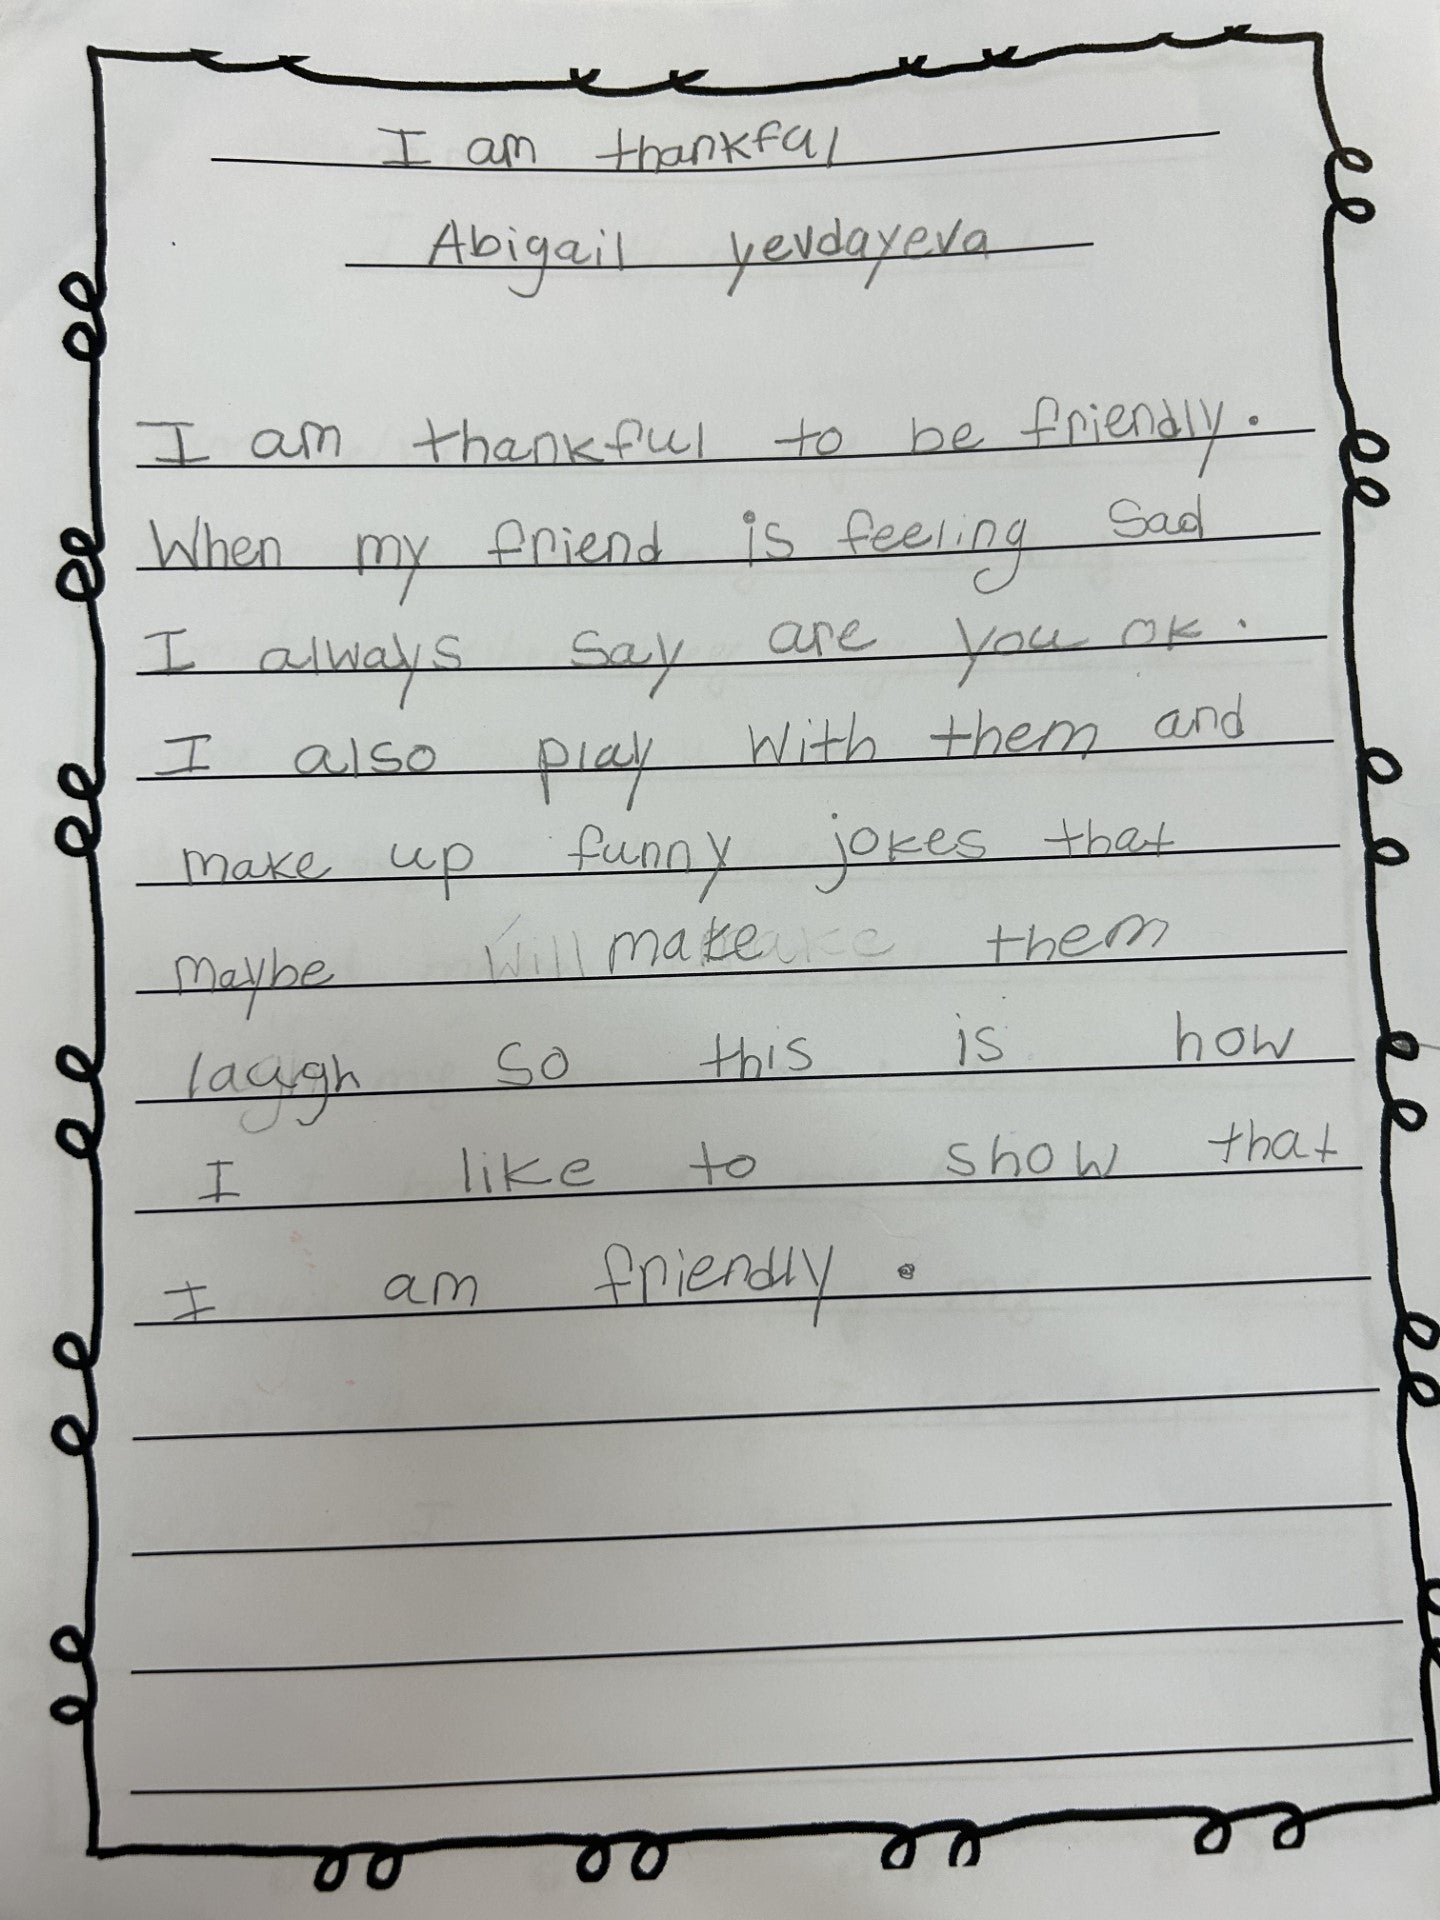 I am thankful
Abigail yevdayeva
I am thankful to be friendly.
When my friend is feeling sad
I always say are you ok.
I also play with them and
make up funny jokes that
maybe will make them
laugh so this is how
I like to show that
I am friendly.